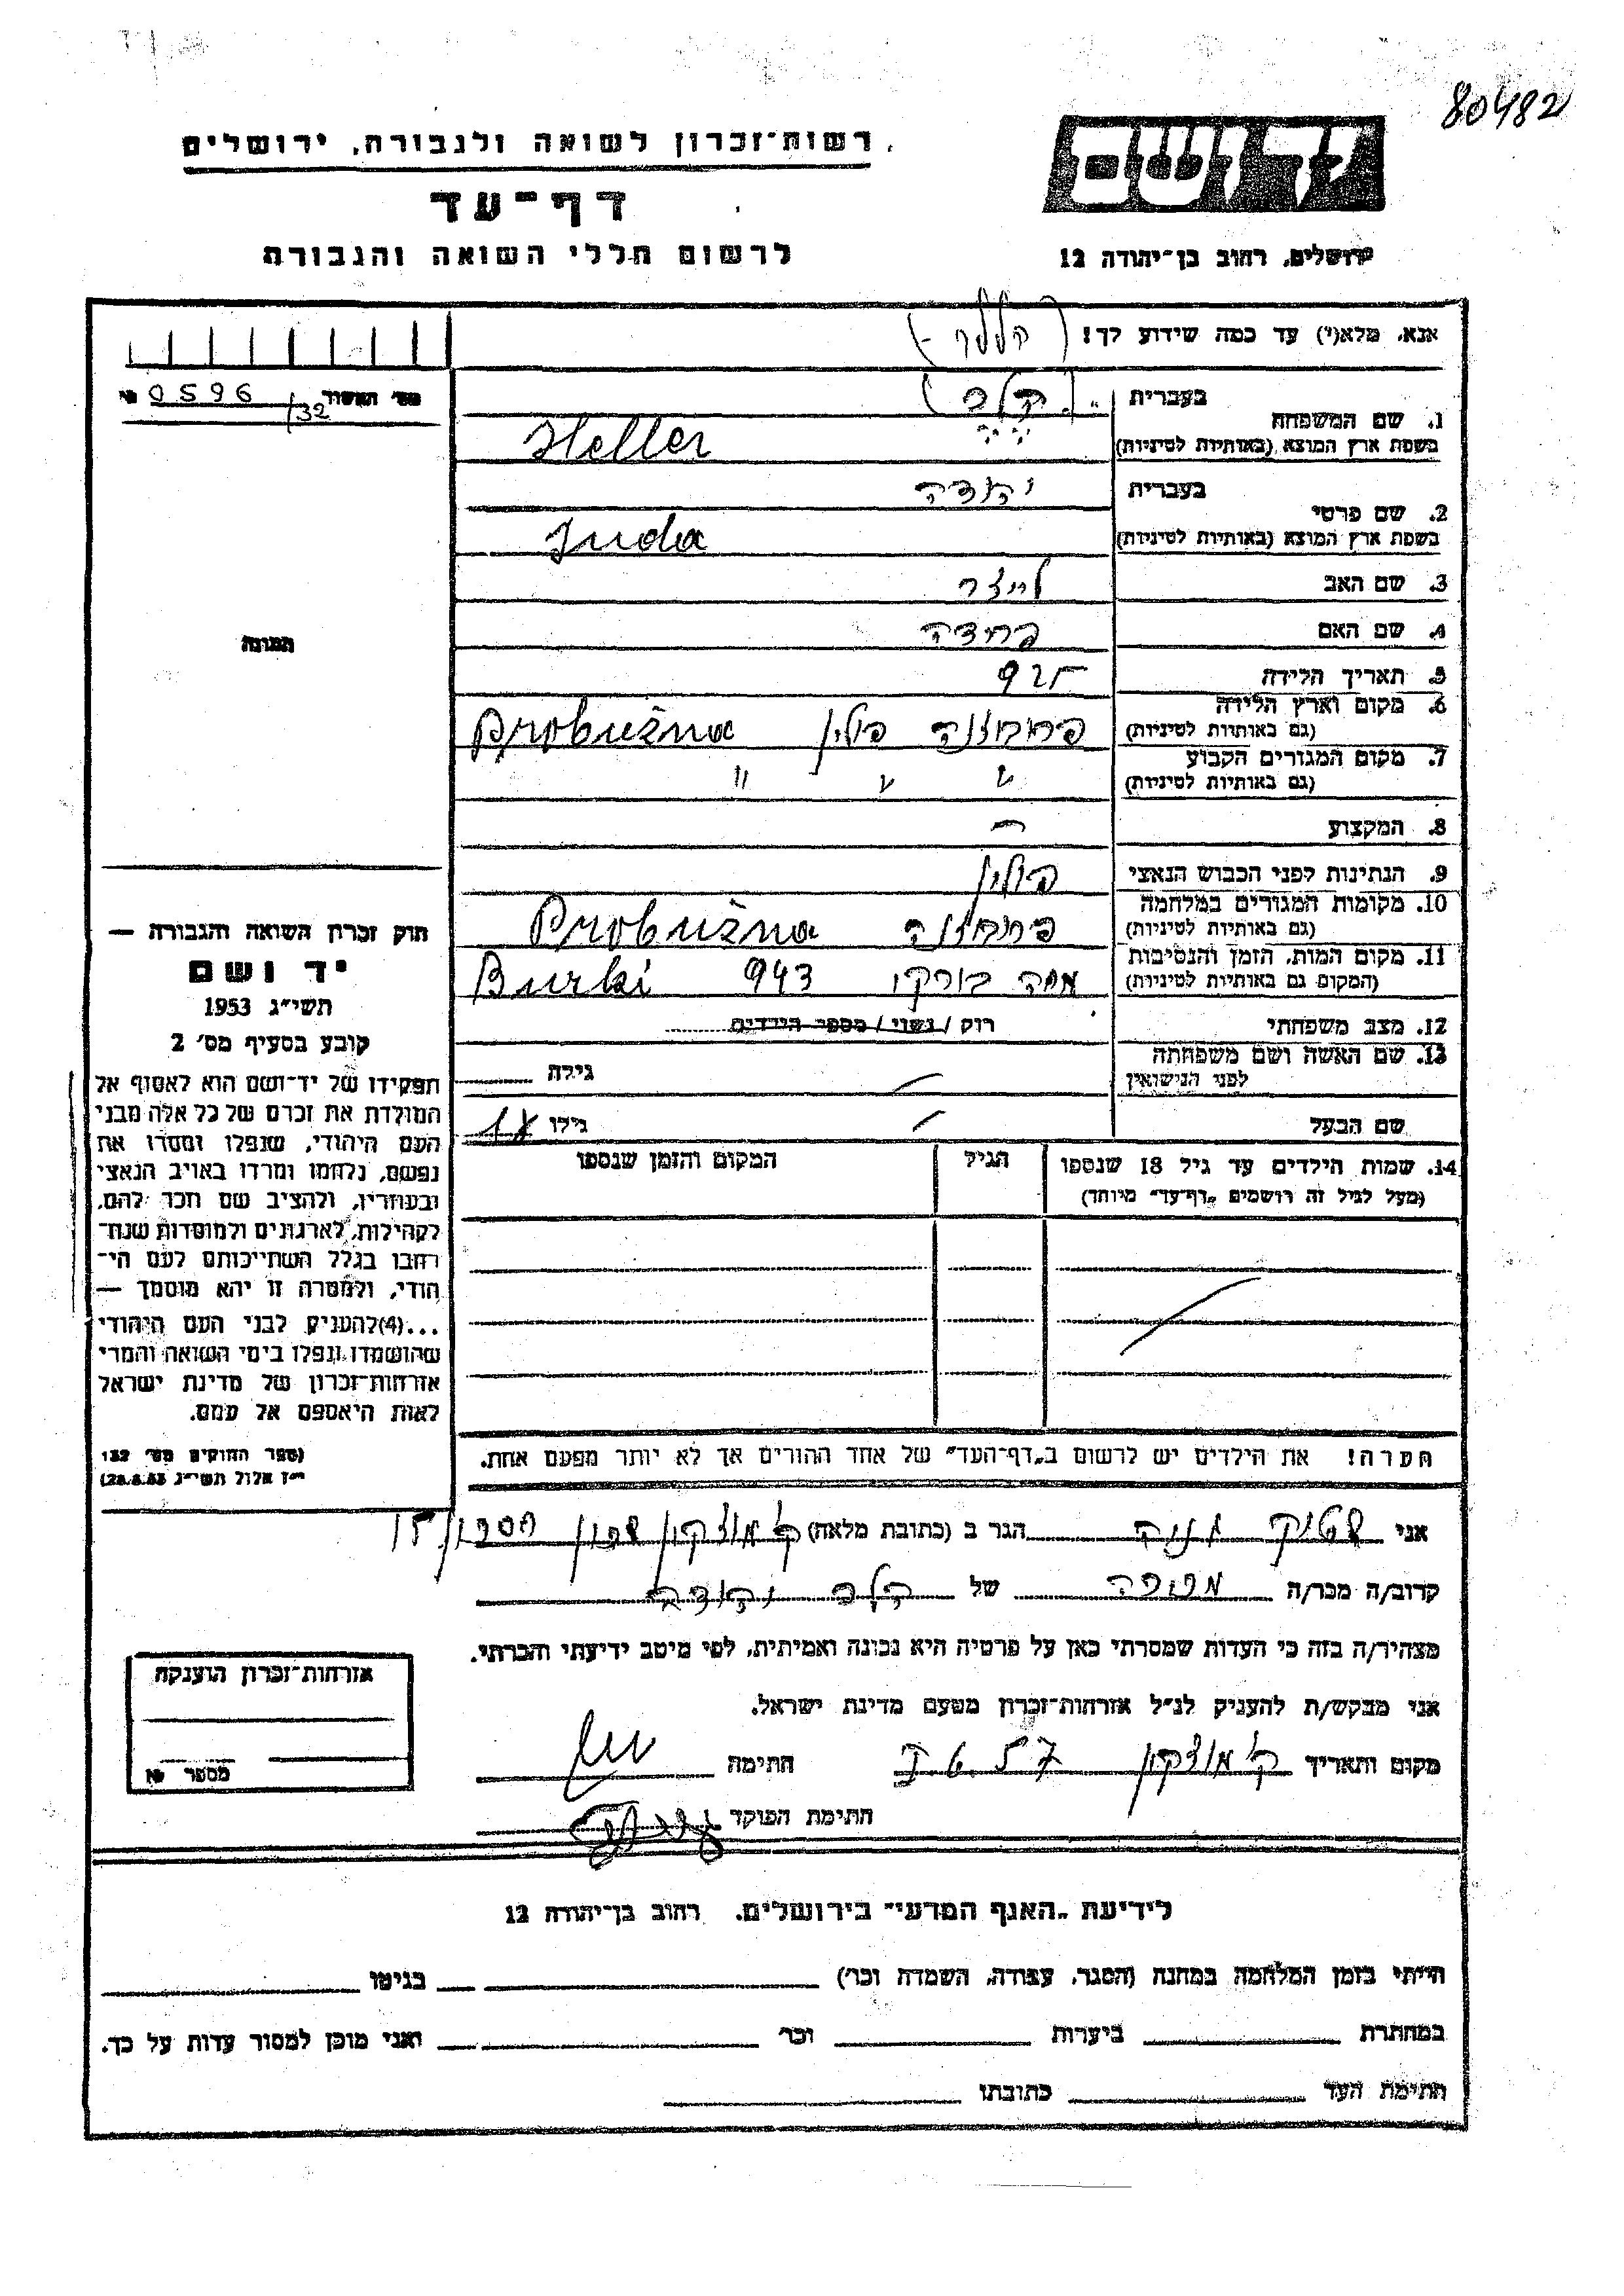 80482
רשות־זכרון לשואה ולגבורה, ירושלים
דף־עד
לרשום חללי השואה והגבורה
יד ושם
ירושלים, רחוב בן־יהודה 12
אנא, מלא(י) עד כמה שידוע לך!
מס׳ האשור № 0596/32
1. שם המשפחה
בעברית
בשפת ארץ המוצא (באותיות לטיניות) Heller
2. שם פרטי
בעברית יהודה
בשפת ארץ המוצא (באותיות לטיניות) Juda
3. שם האב לייזר
4. שם האם
5. תאריך הלידה 925
6. מקום וארץ הלידה (גם באותיות לטיניות) פרובוזנה פולין Probužna
7. מקום המגורים הקבוע (גם באותיות לטיניות) " " "
8. המקצוע –
9. הנתינות לפני הכבוש הנאצי פולין
10. מקומות המגורים במלחמה (גם באותיות לטיניות) פרובוזנה Probužna
11. מקום המות, הזמן והנסיבות (המקום גם באותיות לטיניות) מחנה בורקי 943 Burki
12. מצב משפחתי רווק / נשוי / מספר הילדים
13. שם האשה ושם משפחתה לפני הנישואין – גילה
שם הבעל – גילו 18
14. שמות הילדים עד גיל 18 שנספו (מעל לגיל זה רושמים „דף־עד״ מיוחד)
הגיל
המקום והזמן שנספו
הערה! את הילדים יש לרשום ב„דף־העד״ של אחד ההורים אך לא יותר מפעם אחת.
תמונה
חוק זכרון השואה והגבורה —
יד ושם
תשי״ג 1953
קובע בסעיף מס׳ 2
תפקידו של יד־ושם הוא לאסוף אל
המולדת את זכרם של כל אלה מבני
העם היהודי, שנפלו ומסרו את
נפשם, נלחמו ומרדו באויב הנאצי
ובעוזריו, ולהציב שם וזכר להם,
לקהילות, לארגונים ולמוסדות שנח־
רבו בגלל השתייכותם לעם הי־
הודי, ולמטרה זו יהא מוסמך —
...(4) להעניק לבני העם היהודי
שהושמדו ונפלו בימי השואה והמרי
אזרחות־זכרון של מדינת ישראל
לאות היאספם אל עמם.
(ספר החוקים מס׳ 132
י״ז אלול תשי״ג 28.8.53)
אני שטיק חנה הגר ב (כתובת מלאה) ק׳ מוצקין
קרוב/ה מכר/ה מכירה של הלר יהודה
מצהיר/ה בזה כי העדות שמסרתי כאן על פרטיה היא נכונה ואמיתית, לפי מיטב ידיעתי והכרתי.
אני מבקש/ת להעניק לנ״ל אזרחות־זכרון מטעם מדינת ישראל.
מקום ותאריך ק׳ מוצקין חתימה
חתימת הפוקד
אזרחות־זכרון הוענקה
מספר №
לידיעת „האגף המדעי״ בירושלים. רחוב בן־יהודה 12
הייתי בזמן המלחמה במחנה (הסגר, עבודה, השמדה וכו׳) בגיטו
במחתרת ביערות וכו׳ ואני מוכן למסור עדות על כך.
חתימת העד כתובתו